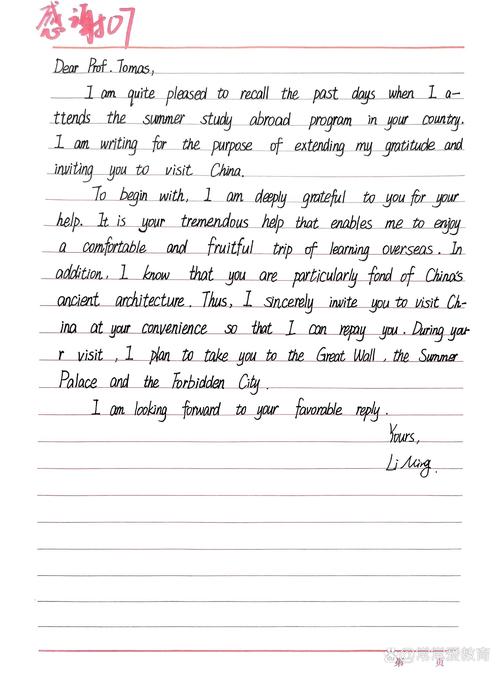 感谢07
Dear Prof. Tomas,
I am quite pleased to recall the past days when I a-
ttends the summer study abroad program in your country.
I am writing for the purpose of extending my gratitude and
inviting you to visit China.
To begin with, I am deeply grateful to you for your
help. It is your tremendous help that enables me to enjoy
a comfortable and fruitful trip of learning overseas. In
addition, I know that you are particularly fond of China's
ancient architecture. Thus, I sincerely invite you to visit Ch-
ina at your convenience so that I can repay you. During you
r visit, I plan to take you to the Great Wall, the Summer
Palace and the Forbidden City.
I am looking forward to your favorable reply.
Yours,
Li Ming.
第 页
常常爱教育